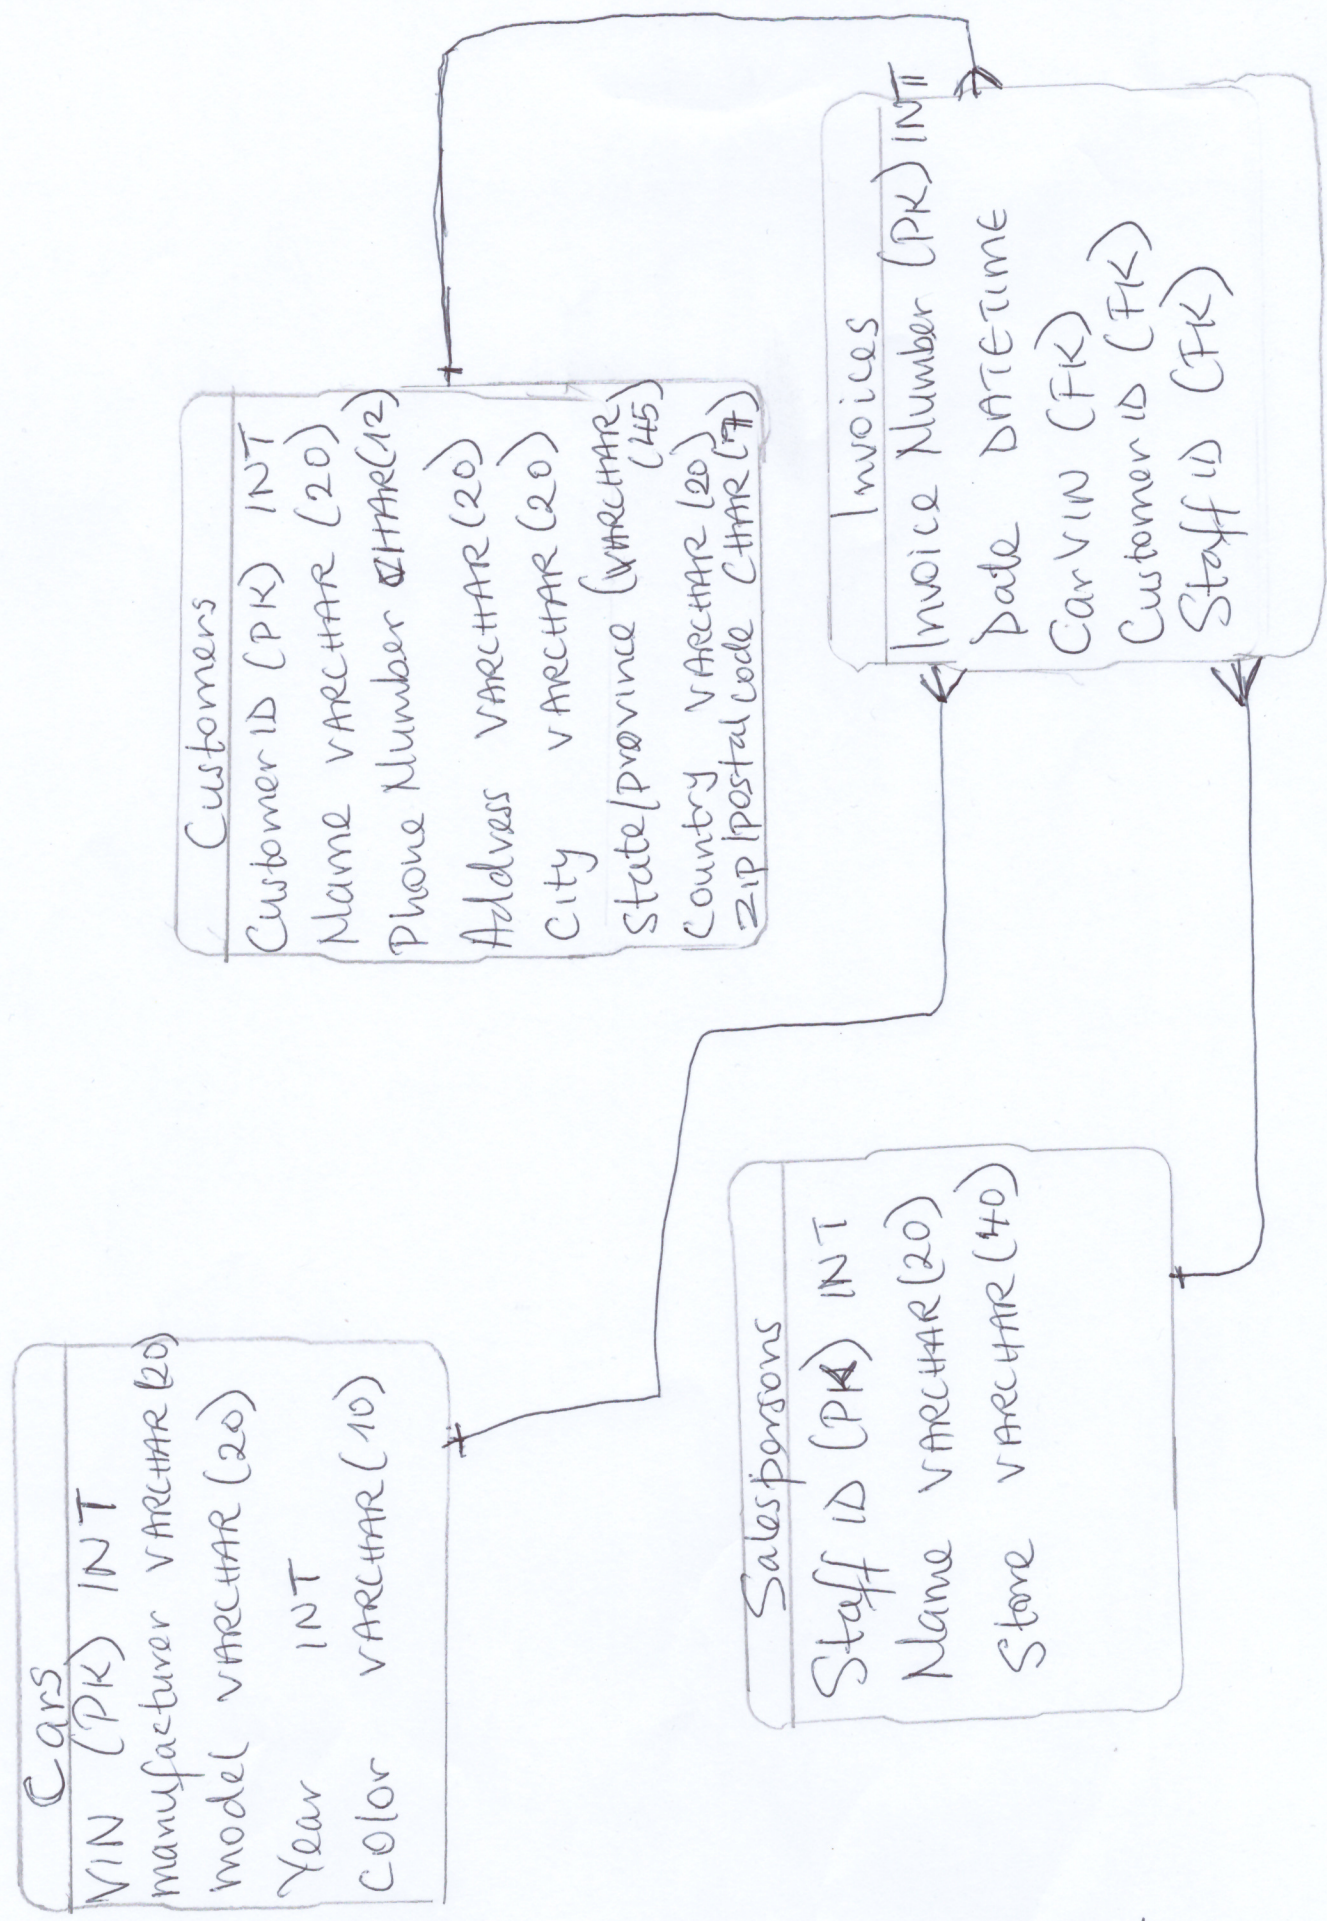 Cars
VIN (PK) INT
manufacturer VARCHAR(20)
model VARCHAR(20)
Year INT
Color VARCHAR(10)
Customers
Customer ID (PK) INT
Name VARCHAR (20)
Phone Number CHAR(12)
Address VARCHAR(20)
City VARCHAR(20)
State/province (VARCHAR)
(45)
Country VARCHAR (20)
Zip/postal code CHAR(7)
Salespersons
Staff ID (PK) INT
Name VARCHAR(20)
Store VARCHAR(40)
Invoices
Invoice Number (PK) INT
Date DATETIME
Car VIN (FK)
Customer ID (FK)
Staff ID (FK)